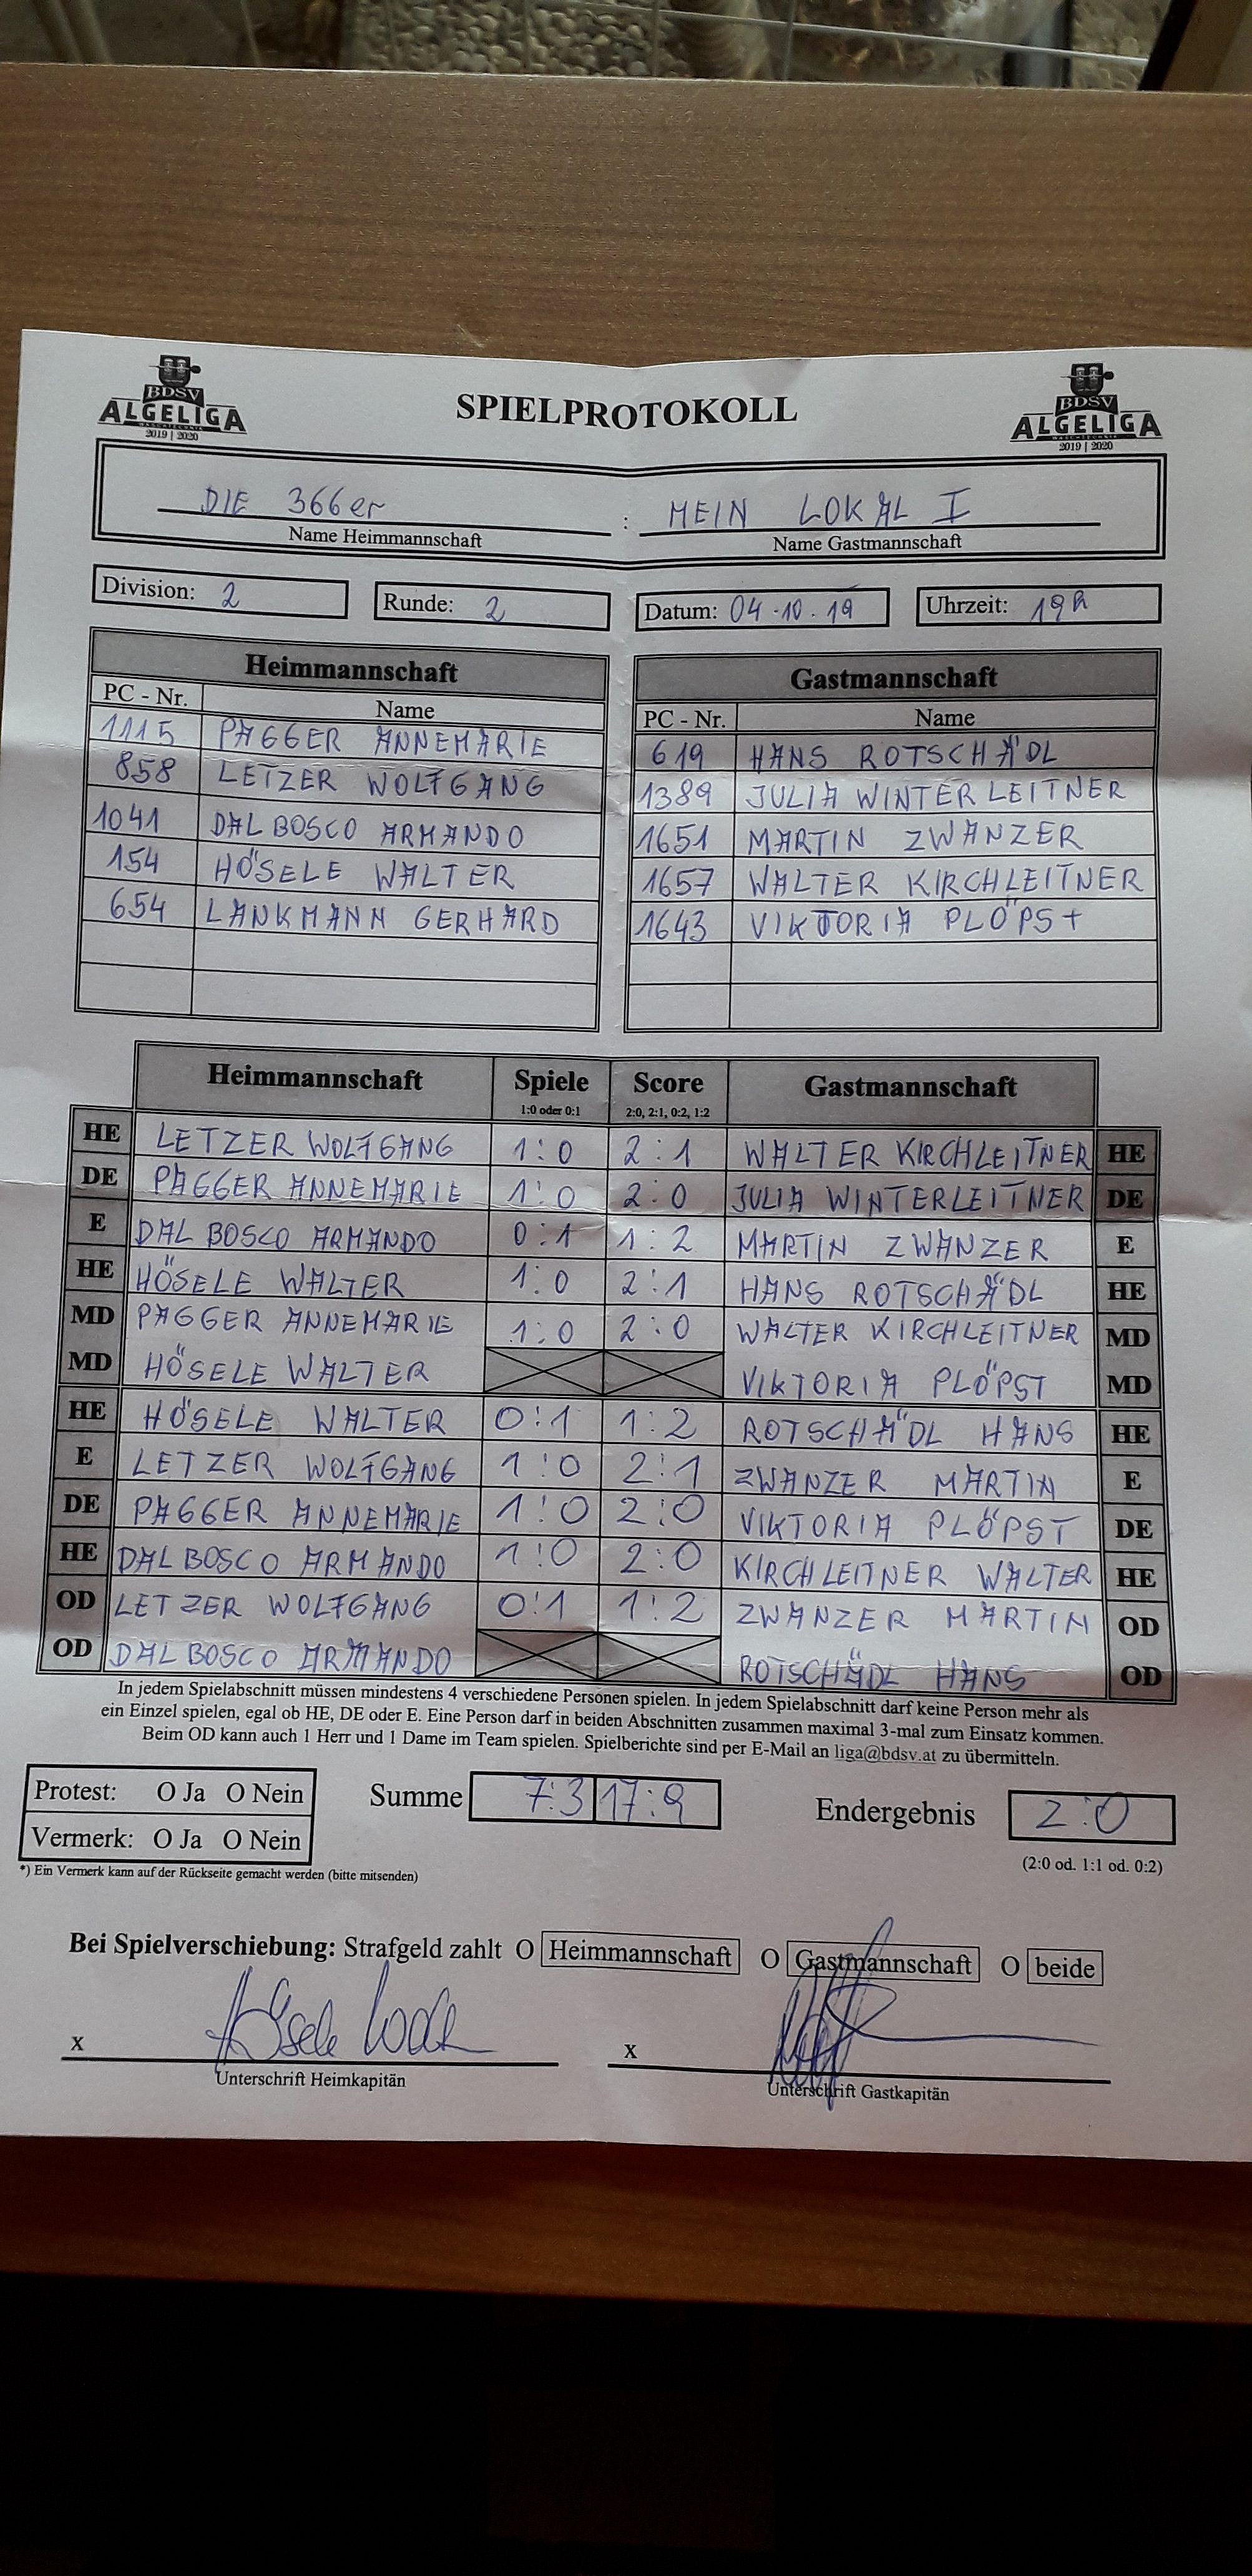 BDSV
ALGELIGA
2019 | 2020
SPIELPROTOKOLL
BDSV
ALGELIGA
2019 | 2020
DIE 366er : MEIN LOKAL I
Name Heimmannschaft Name Gastmannschaft
Division: 2 Runde: 2 Datum: 04.10.19 Uhrzeit: 19h
Heimmannschaft Gastmannschaft
PC - Nr. Name PC - Nr. Name
1115 PAGGER ANNEMARIE 619 HANS ROTSCHÄDL
858 LETZER WOLFGANG 1389 JULIA WINTERLEITNER
1041 DAL BOSCO ARMANDO 1651 MARTIN ZWANZER
154 HÖSELE WALTER 1657 WALTER KIRCHLEITNER
654 LANKMANN GERHARD 1643 VIKTORIA PLÖPST
Heimmannschaft Spiele Score Gastmannschaft
1:0 oder 0:1 2:0, 2:1, 0:2, 1:2
HE LETZER WOLFGANG 1:0 2:1 WALTER KIRCHLEITNER HE
DE PAGGER ANNEMARIE 1:0 2:0 JULIA WINTERLEITNER DE
E DAL BOSCO ARMANDO 0:1 1:2 MARTIN ZWANZER E
HE HÖSELE WALTER 1:0 2:1 HANS ROTSCHÄDL HE
MD PAGGER ANNEMARIE 1:0 2:0 WALTER KIRCHLEITNER MD
MD HÖSELE WALTER VIKTORIA PLÖPST MD
HE HÖSELE WALTER 0:1 1:2 ROTSCHÄDL HANS HE
E LETZER WOLFGANG 1:0 2:1 ZWANZER MARTIN E
DE PAGGER ANNEMARIE 1:0 2:0 VIKTORIA PLÖPST DE
HE DAL BOSCO ARMANDO 1:0 2:0 KIRCHLEITNER WALTER HE
OD LETZER WOLFGANG 0:1 1:2 ZWANZER MARTIN OD
OD DAL BOSCO ARMANDO ROTSCHÄDL HANS OD
In jedem Spielabschnitt müssen mindestens 4 verschiedene Personen spielen. In jedem Spielabschnitt darf keine Person mehr als
ein Einzel spielen, egal ob HE, DE oder E. Eine Person darf in beiden Abschnitten zusammen maximal 3-mal zum Einsatz kommen.
Beim OD kann auch 1 Herr und 1 Dame im Team spielen. Spielberichte sind per E-Mail an liga@bdsv.at zu übermitteln.
Protest: O Ja O Nein Summe 7:3 17:9 Endergebnis 2:0
Vermerk: O Ja O Nein (2:0 od. 1:1 od. 0:2)
*) Ein Vermerk kann auf der Rückseite gemacht werden (bitte mitsenden)
Bei Spielverschiebung: Strafgeld zahlt O Heimmannschaft O Gastmannschaft O beide
x Hösele x
Unterschrift Heimkapitän Unterschrift Gastkapitän